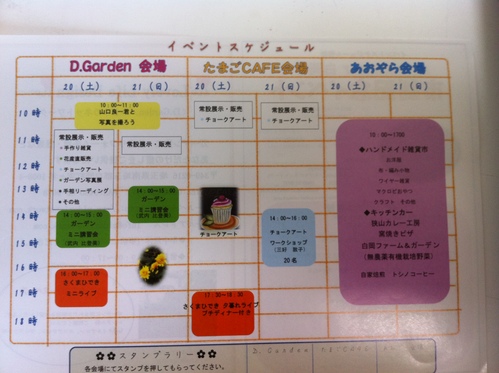 イベントスケジュール
D.Garden 会場
たまごCAFE会場
あおぞら会場
20（土）
21（日）
20（土）
21（日）
20（土）
21（日）
10時
11時
12時
13時
14時
15時
16時
17時
18時
10:00～11:00
山口良一君と
写真を撮ろう
常設展示・販売
・手作り雑貨
・花直直販売
・チョークアート
・ガーデン写真展
・手相リーディング
・その他
常設展示・販売
14:00～15:00
ガーデン
ミニ講習会
16:00～17:00
さくまひでき
ミニライブ
ガーデン
ミニ講習会
常設展示・販売
・チョークアート
常設展示・販売
・チョークアート
チョークアート
14:00～16:00
チョークアート
ワークショップ
20名
17:30～18:30
さくまひでき 夕暮れライブ
プチディナー付き
10:00～1700
◆ハンドメイド雑貨市
布・編み小物
ワイヤー雑貨
マクロビおやつ
クラフト その他
◆キッチンカー
狭山カレー工房
窯焼きピザ
白岡ファーム＆ガーデン
(無農薬有機栽培野菜)
自家焙煎 トシノコーヒー
✿✿スタンプラリー✿✿
各会場にてスタンプを押してもらってください。
D.Garden